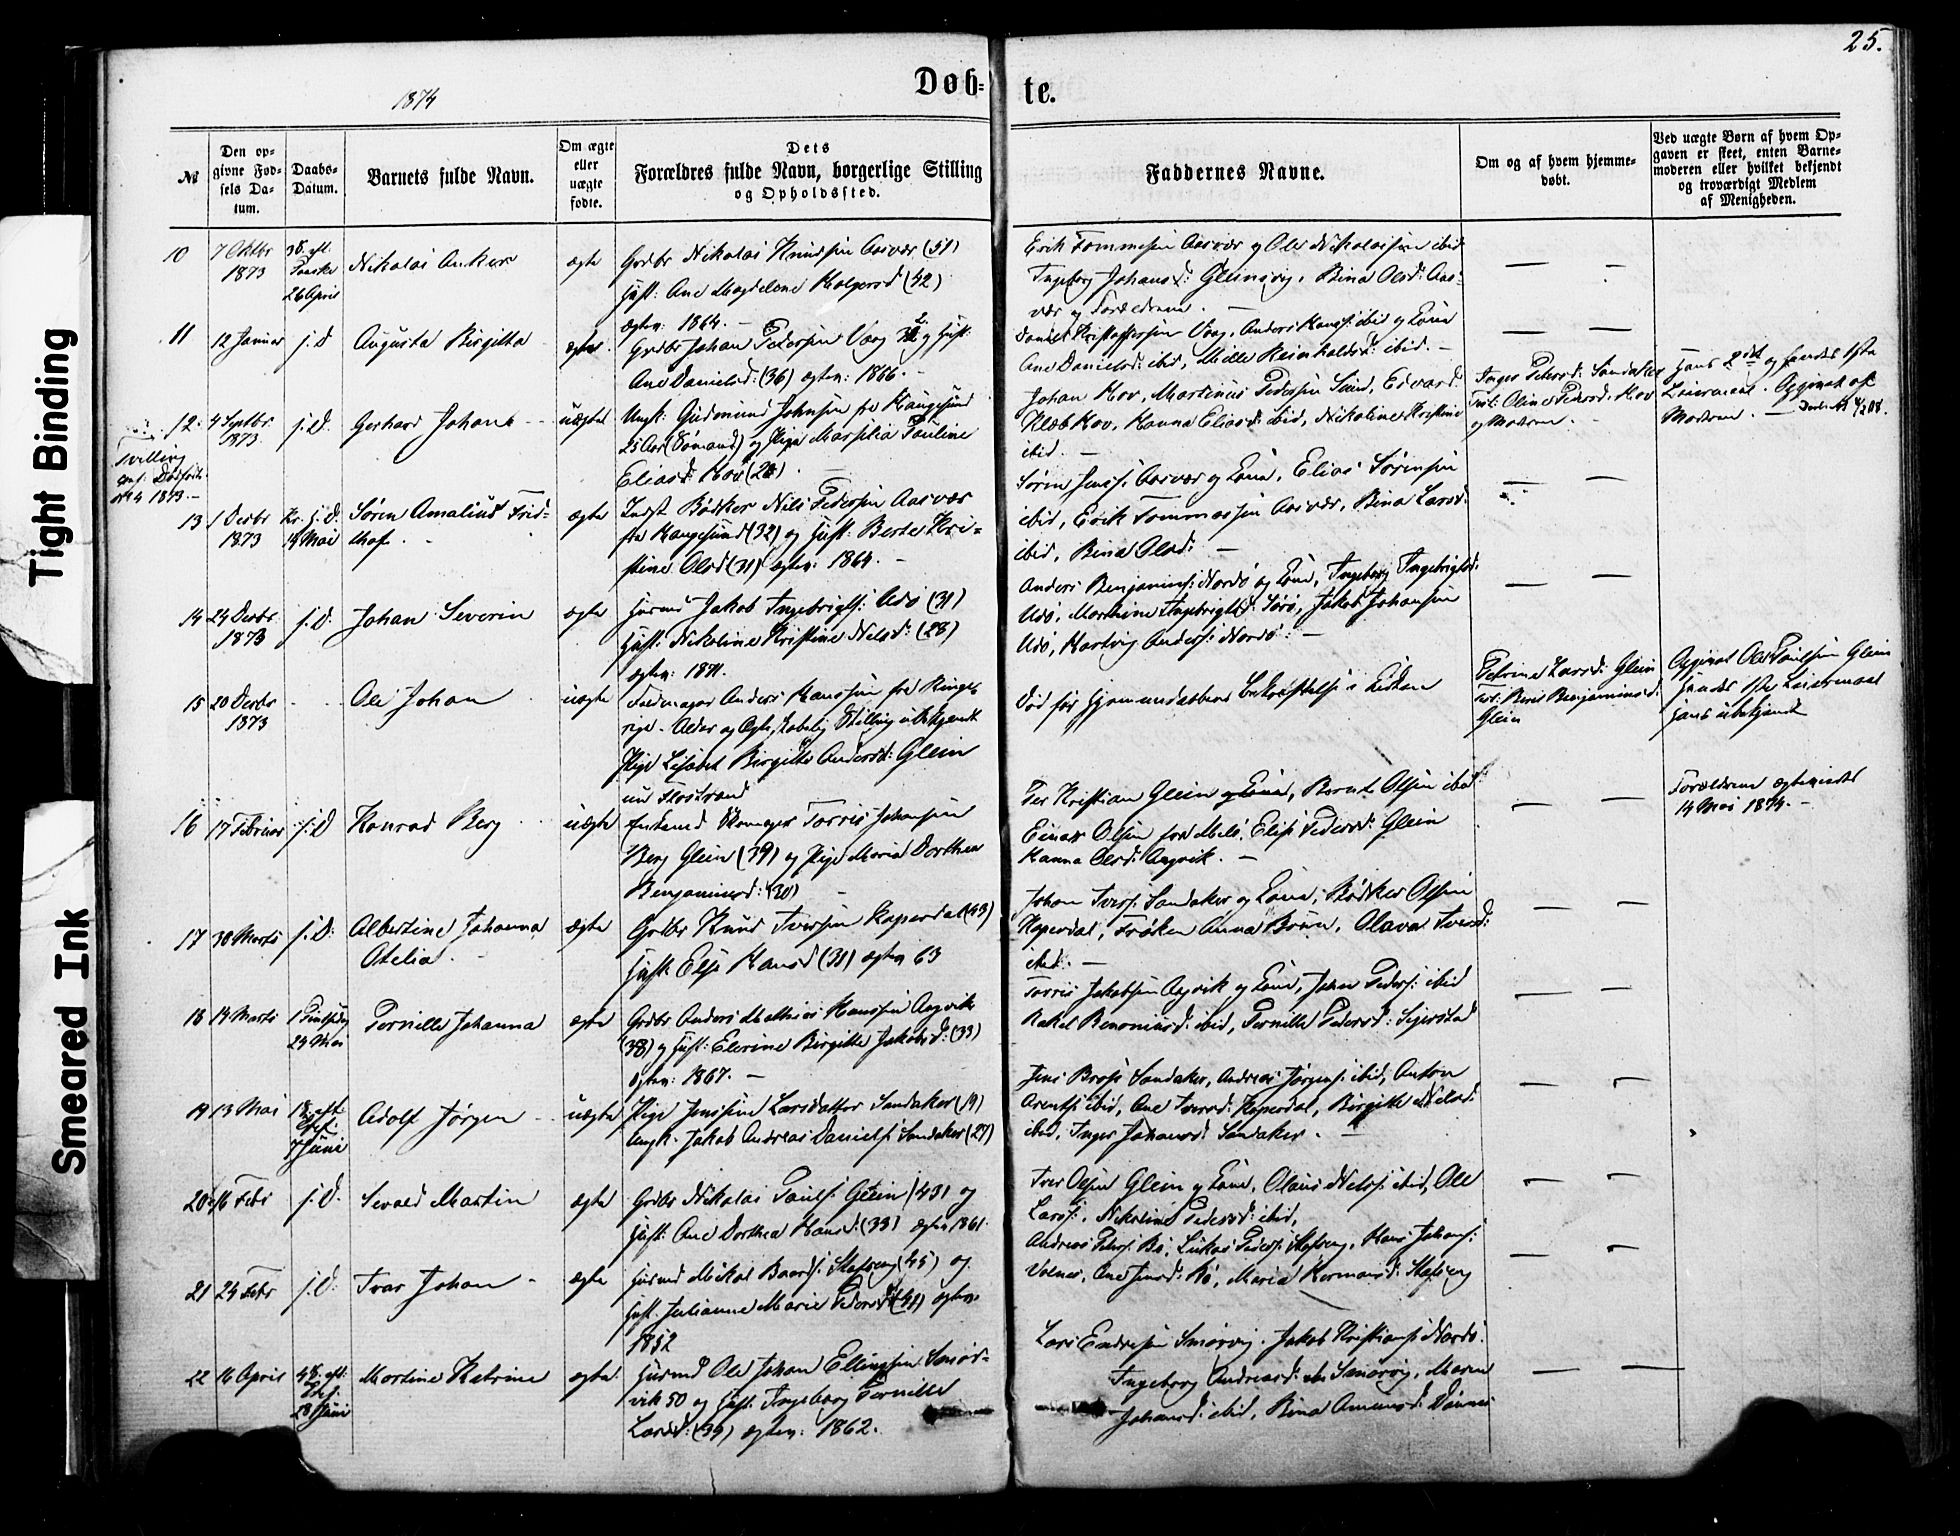 25.
Døb=te.
1874
№
Den op=
givne Fød=
sels Da=
tum.
Daabs=
Datum.
Barnets fulde Navn.
Om ægte
eller
uægte
fødte.
Dets
Forældres fulde Navn, borgerlige Stilling
og Opholdssted.
Faddernes Navne.
Om og af hvem hjemme=
døbt.
Ved uægte Børn af hvem Op=
gaven er skeet, enten Barne=
moderen eller hvilket bekjendt
og troværdigt Medlem
af Menigheden.
10 7 Oktbr 1873
26 April
Nikolai Anker
ægte
Grdbr Nikolai Knudsen Aasvær (51)
Hust: Ane Magdelene Holgersd (42)
ægtev: 1864. —
Erik Tommesen Aasvær og Ole Nikolaisen ibid
Ingeborg Johansd: Gleinsvig, Bina Olsd: Aas=
vær og Forældrene. —
11 12 Januar j. D
Augusta Birgitta
ægte
Grdbr Johan Pedersen Vaag og Hust:
Ane Danielsd: (36) ægtev: 1866. —
Daniel Kristoffersen Vaag, Anders Hansen ibid og Kone
Ane Danielsd: ibid, Reinholdsd: ibid. —
12. 4 Septbr 1873 j. D.
Tvilling
№ 4 1873. —
Gerhard Johan
uægte
Ungk: Gudmund Johnsen fra Haugesund
25 Aar (Sømand) og Pige Marselia Pauline
Eliasd: Hov (28) —
Johan Hov, Martinus Pedersen Sund, Edvard
Klæbo Hov, Hanna Eliasd: ibid, Nikoline Kristine
ibid. —
Inger Petersd: Sandaker
Test: Oline Pedersd: Hov
og Moderen.
Hans 2det og hendes 1ste
Leiermaal. Opgivet af
Moderen. —
13 1 Decbr 1873
Kr. H. D.
14 Mai
Søren Amalius Frid=
thof. —
ægte
Indst Bødker Nils Pedersen Aasvær
fra Haugesund (32) og Hust: Berte Kri=
stine Olsd (31) ægtev: 1864. —
Søren Jensen Aasvær og Kone, Elias Sørensen
ibid, Erik Tommesen Aasvær, Bina Larsd:
ibid, Bina Olsd: —
14 24 Decbr 1873 j. D.
Johan Severin
ægte
Husmd Jakob Ingebrigts: Udø (31)
Hust: Nikoline Kristine Nelsd: (28)
ægtev: 1871.
Anders Benjamins: Nordø og Kone, Ingeborg Ingebrigtsd:
Udø, Marthine Ingebrigtsd: Sørø, Jakob Johansen
Udø, Hartvig Anders: Nordø. —
15 20 Decbr 1873
Ole Johan
uægte
Anders Hanssen fra Ringe=
rige. Alder og Ægteskabelig Stilling ubekjendt
Pige Lisabet Birgitte Andersd: Glein
Død før Hjemmedaabens Bekræftelse i Kirken
Petrine Larsd: Glein
Test: Berit Benjaminsd:
Glein
Opgivet Ole Paulsen Glein
hendes 1ste Leiermaal
hans ubekjendt
16 17 Februar j. D
Konrad Berg
uægte
Enkemd Skomager Torris Johansen
Berg Glein (39) og Pige Maria Dorthea
Benjaminsd: (30) —
Per Kristian Glein og Kone, Bernt Olsen ibid
Einar Olsen fra Melø, Elise Pedersd: Glein
Hanna Olsd: Angvik. —
Forældrene ægteviede
14 Mai 1874. —
17 30 Marts j. D:
Albertine Johanna
Otelia. —
ægte
Grdbr Knud Iversen Kopardal (43)
Hust: Else Hansd (38) ægtev 63
Johan Ivers: Sandaker og Kone, Bødker Olsen
Kopardal, Frøken Anna Brun, Olava Iversd:
ibid. —
18 14 Marts
24 Mai
Pernille Johanna
ægte
Grdbr Anders Mathias Hansen Angvik
(38) og Hust: Elerine Birgitte Jakobsd: (33)
ægtev: 1867. —
Torris Jakobsen Angvik og Kone, Johan Peders: ibid
Rakel Benoniasd: ibid, Pernille Pedersd: Seierstad
19 13 Mai
7 Juni
Adolf Jørgen
uægte
Pige Jensine Larsdatter Sandaker (19)
Ungk. Jakob Andreas Daniels: Sandaker (27)
Jens Brose Sandaker, Andreas Jørgens: ibid, Anton
Arents: ibid, Ane Iversd: Kopardal, Birgitte Nelsd:
ibid, Inger Johansd: Sandaker. —
20 16 Febr j. D.
Sevald Martin
ægte
Grdbr Nikolai Pauls: Glein (43) og
Hust: Ane Dorthea Hansd: (33) ægtev 1861.
Iver Olsen Glein og Kone, Olaus Nels: ibid, Ole
Lars:, Nikoline Pedersd: ibid,
21 24 Febr j. D.
Ivar Johan
ægte
Husmd Mikal Baards: Skeiseng (45) og
Hust. Julianne Marie Pedersd: (41) ægtev:
1852
Andreas Peters: Bø, Lukas Peders: Skeiseng, Hans Johans:
Volnes, Ane Jensd: Bø, Maria Hermansd: Skeiseng
22 16 April
28 Juni
Martine Katrine
ægte
Husmd Ole Johan Ellingsen Smør=
vik 50 og Hust. Ingeborg Pernille
Larsd: (39) ægtev: 1862.
Lars Endresen Smørvig, Jakob Kristians: Nordø.
Ingeborg Andreasd: Smørvig, Maren
Johansd: ibid, Bina Amundsd: Dønnes
Tight Binding
Smeared Ink